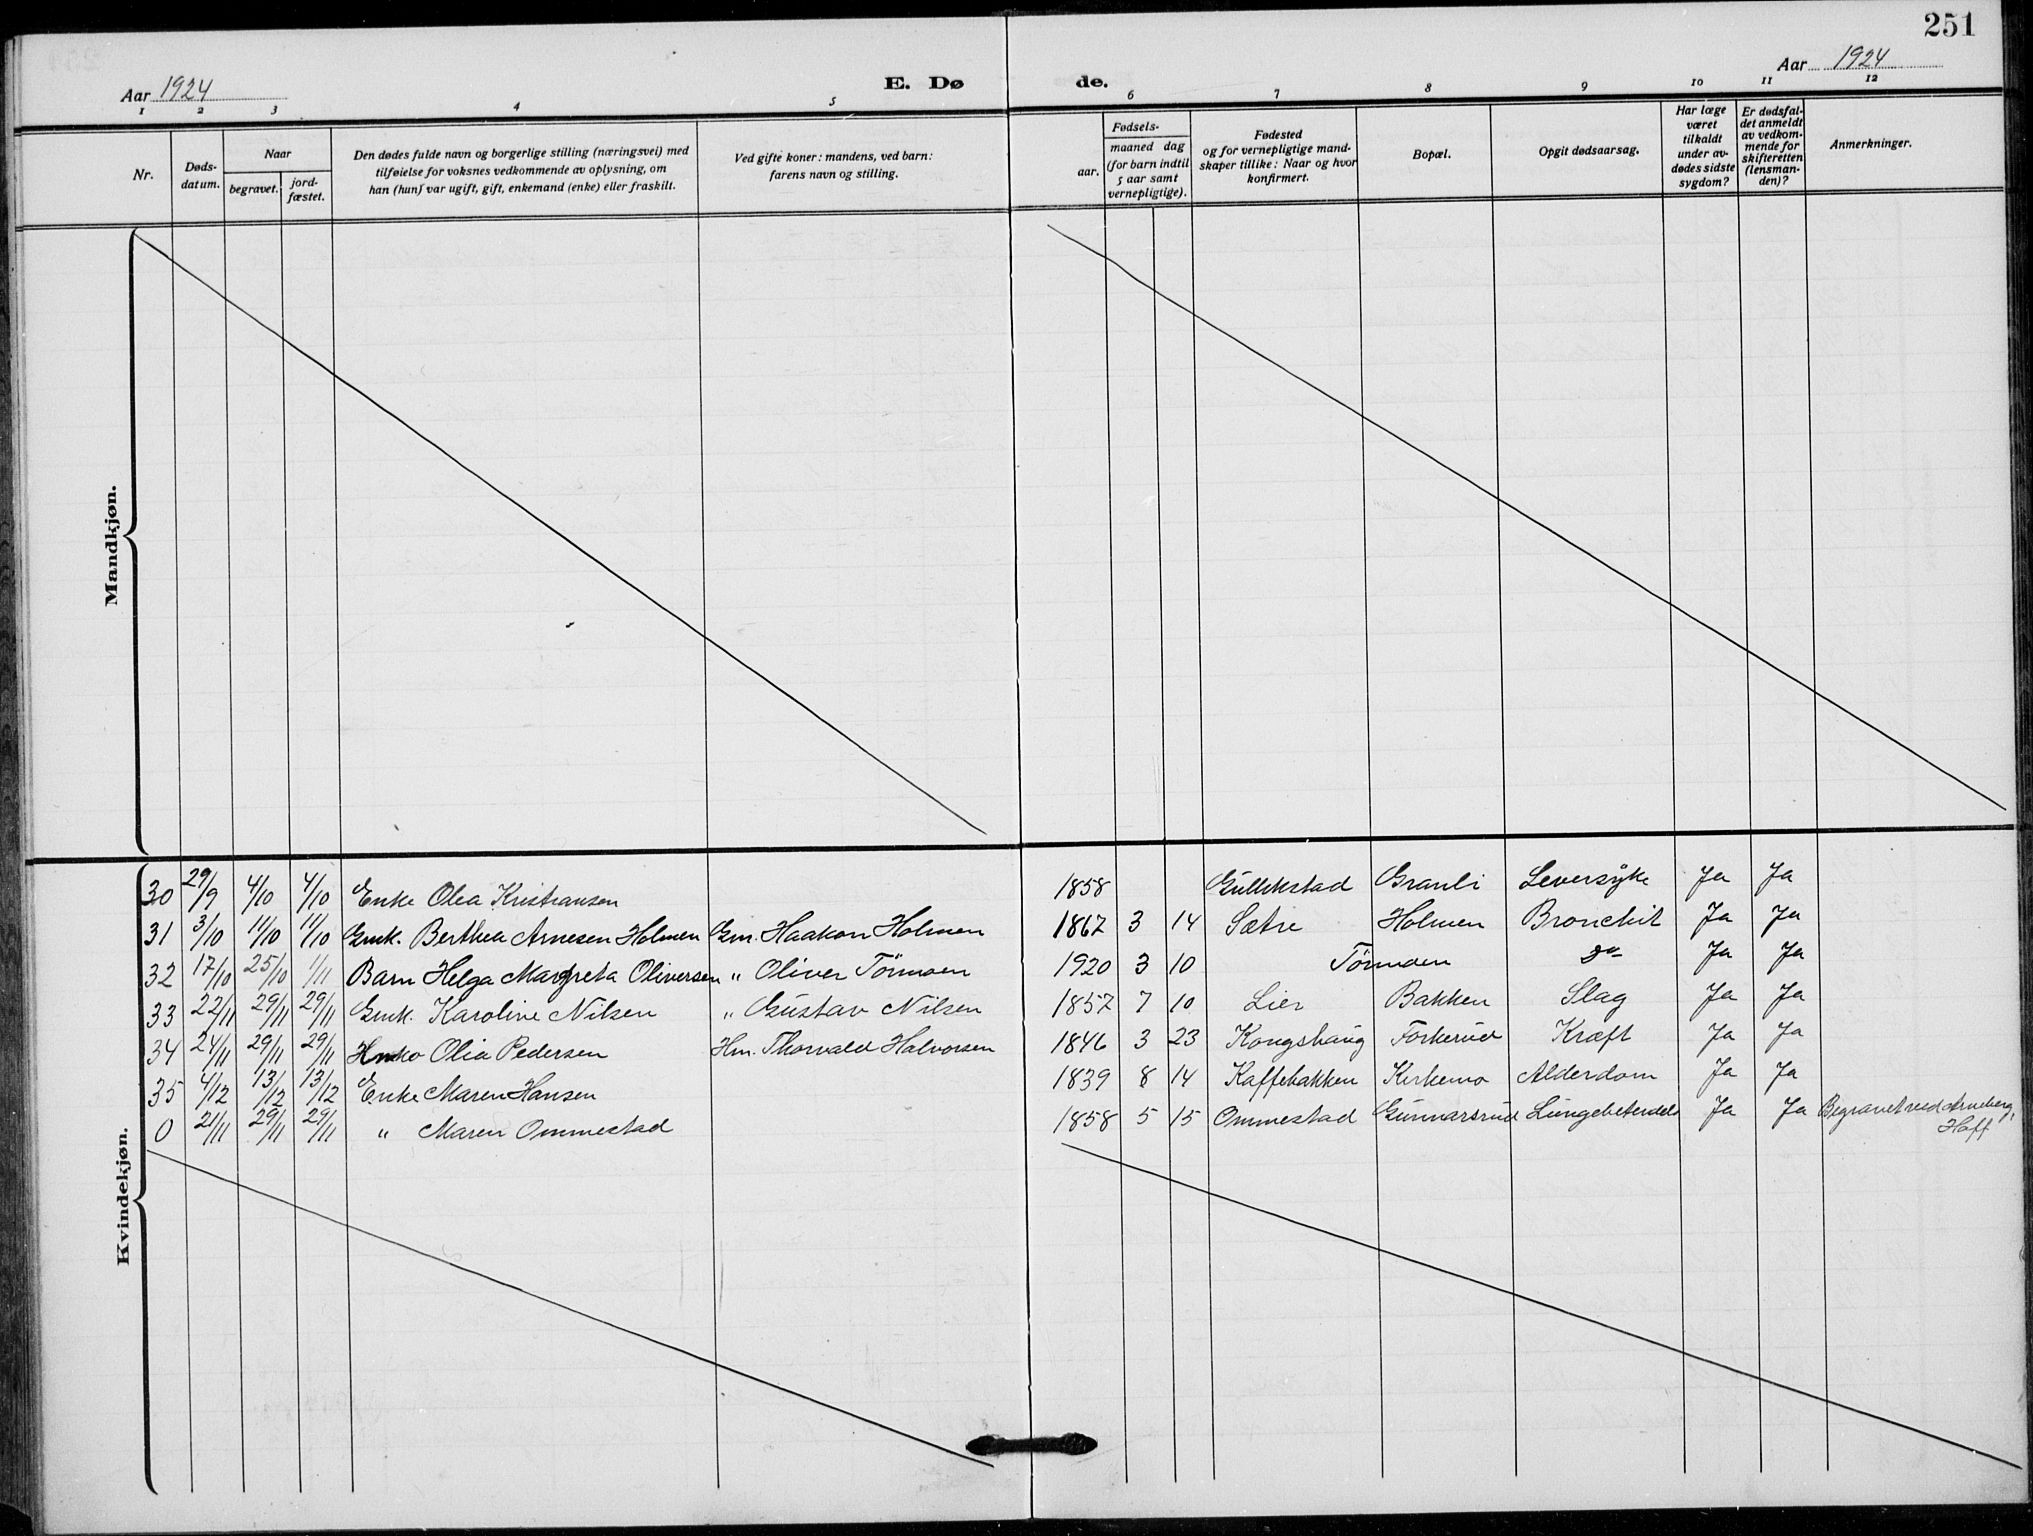 251
Aar 1924
E. Dø de.
Aar 1924
1 2 3 4 5 6 7 8 9 10 11 12
Nr.
Døds-
datum.
Naar
begravet.
jord-
fæstet.
Den dødes fulde navn og borgerlige stilling (næringsvei) med
tilføielse for voksnes vedkommende av oplysning, om
han (hun) var ugift, gift, enkemand (enke) eller fraskilt.
Ved gifte koner: mandens, ved barn:
farens navn og stilling.
Fødsels-
aar.
maaned dag
(for barn indtil
5 aar samt
vernepligtige).
Fødested
og for vernepligtige mand-
skaper tillike: Naar og hvor
konfirmert.
Bopæl.
Opgit dødsaarsag.
Har læge
været
tilkaldt
under av-
dødes sidste
sygdom?
Er dødsfal-
det anmeldt
av vedkom-
mende for
skifteretten
(lensman-
den)?
Anmerkninger.
Mandkjøn.
Kvindekjøn.
30 29/9 4/10 4/10 Enke Olea Kristiansen 1858 Gullikstad Granli Leversyke Ja Ja
31 3/10 11/10 11/10 Gmk. Berthea Arnesen Holmen Gm. Haakon Holmen 1867 3 14 Sætre Holmen Bronchit Ja Ja
32 17/10 25/10 1/11 Barn Helga Margreta Oliversen " Oliver Törmoen 1920 3 10 Törmoen do Ja Ja
33 22/11 29/11 29/11 Gmk. Karoline Nilsen " Gustav Nilsen 1857 7 10 Lier Bakken Slag Ja Ja
34 24/11 29/11 29/11 Olia Pedersen Hm. Thorvald Halvorsen 1846 3 23 Kongshaug Förkerud Kræft Ja Ja
35 4/12 13/12 13/12 Enke Maren Hansen 1839 8 14 Kaffebakken Kirkemo Alderdom Ja Ja
0 21/11 29/11 29/11 " Maren Ommestad 1858 5 15 Ommestad Gunnarsrud Ja Ja Begravet ved Arneberg,
Hoff